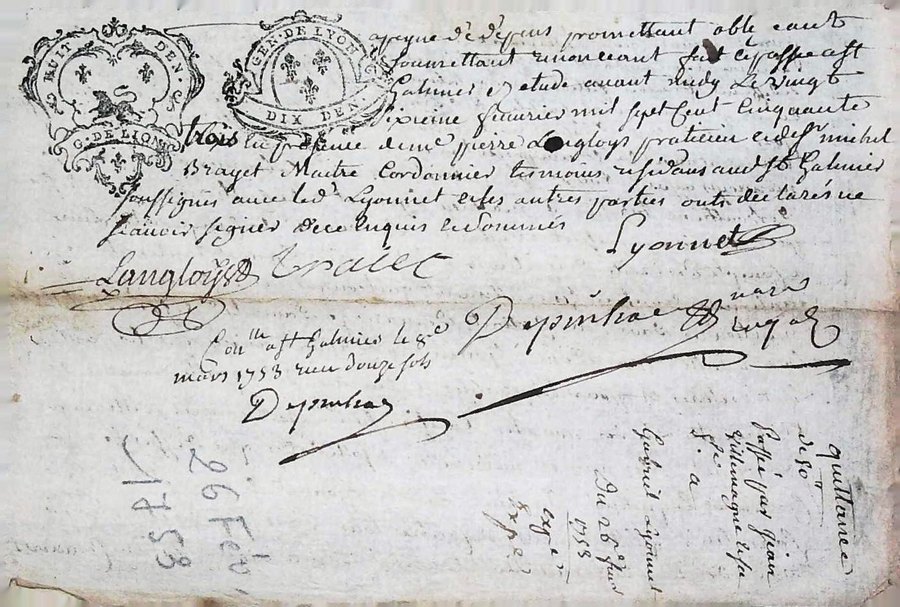 HUIT DEN.
G. DE LION
GEN. DE LYON
DIX DEN.
apeyne de depens promettant oblig eant
soumettant renonceant fait & passe a st
Galmier & etude avant midy le vingt
sixieme fevrier mil sept cent cinquante
trois en presence de me pierre Langloys praticien et de sr michel
Brayet Maitre Cordonnier temoins residans aud st Galmier
soussignes avec led Lyonnet et les autres parties onts declarés ne
scavoir signer de ce enquis et sommés
Lyonnet
Langloys
Conlle a st Galmier le 8e
mars 1753 reçu douze sols
quittance
de 50
Passé par Jean
Villemagne et sa
fe a
Gabriel Lyonnet
Du 26 fevr
1753
expe
26 Fev
1753